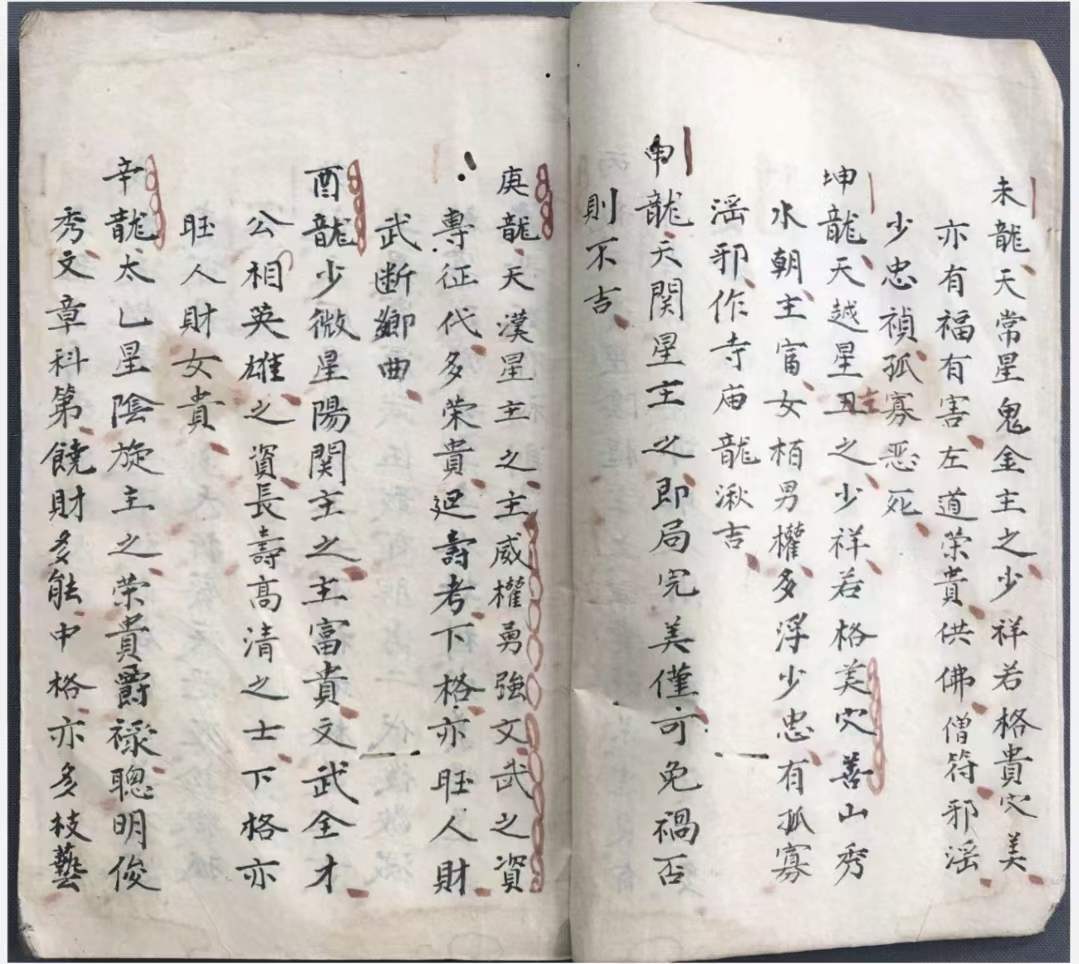 未龍天常星鬼金主之少祥若格貴穴美
亦有福有害左道荣貴供佛僧符邪滛
少忠禎孤寡恶死
坤龍天越星丑主之少祥若格美穴善山秀
水朝主富女栢男權多浮少忠有孤寡
滛邪作寺庙龍湫吉
申龍天関星主之即局完美僅可免禍否
則不吉
庚龍天漢星主之主威權勇強文武之資
專征代多荣貴廻壽考下格亦旺人財
武断鄉曲
酉龍少微星陽関主之主富貴文武全才
公相英雄之資長壽高清之士下格亦
旺人財女貴
辛龍太乚星陰旋主之荣貴爵禄聰明俊
秀文章科第饒財多能中格亦多枝藝